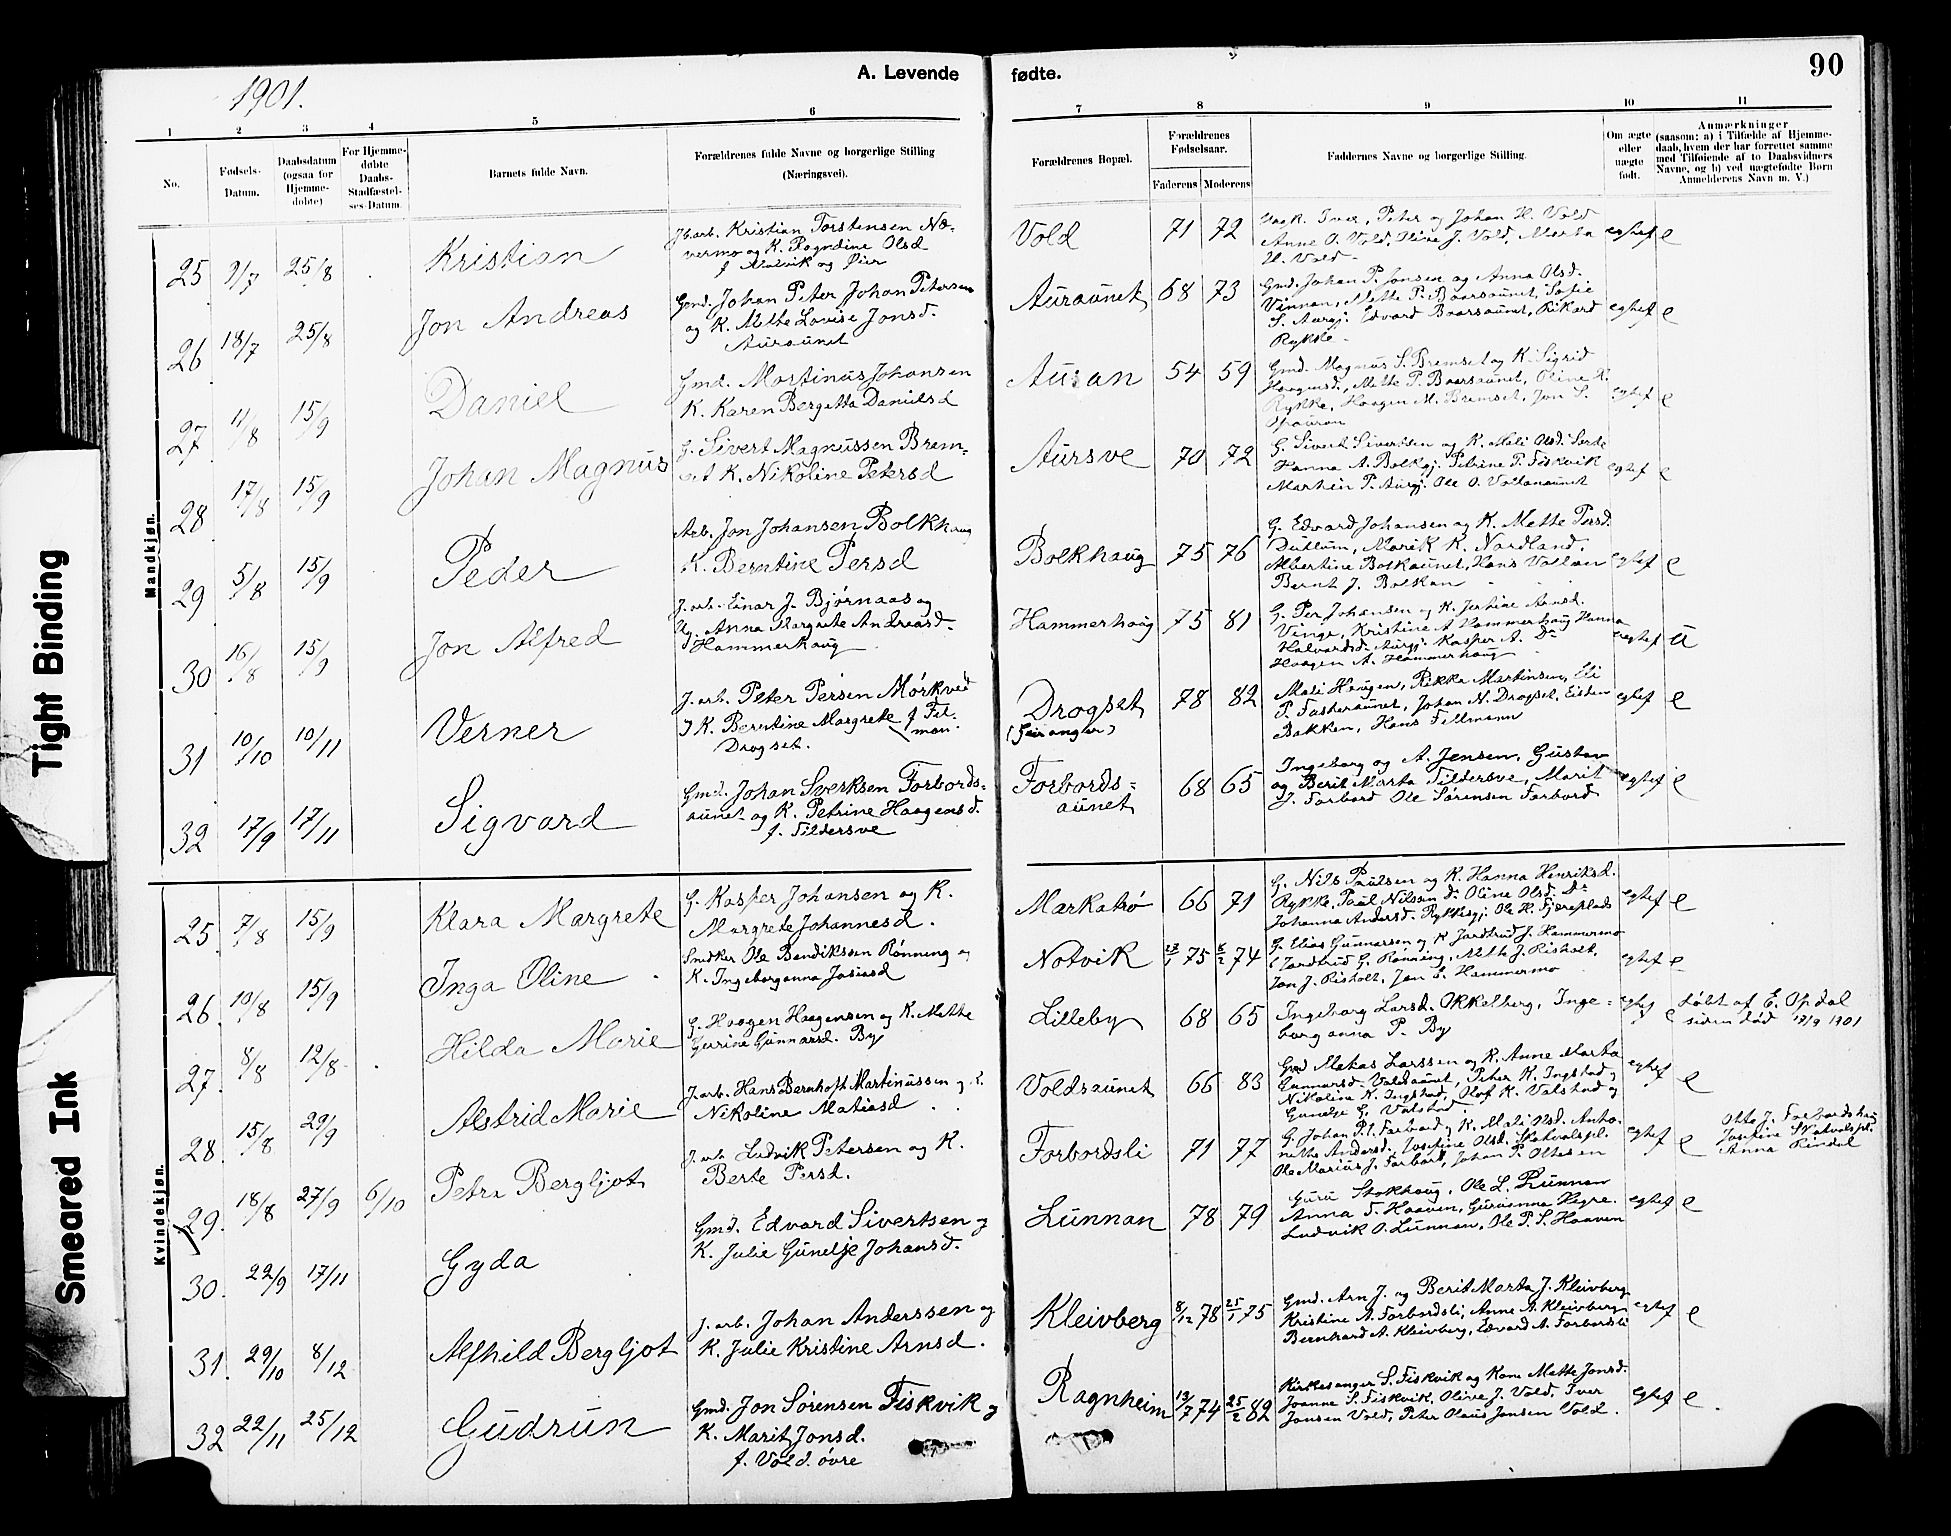 1901.
A. Levende
fødte.
90
1 2 3 4 5 6 7 8 9 10 11
No.
Fødsels-Datum.
Daabsdatum (ogsaa for Hjemme-døbte)
For Hjemme-døbte Daabs-Stadfæstel-ses-Datum.
Barnets fulde Navn.
Forældrenes fulde Navne og borgerlige Stilling (Næringsvei).
Forældrenes Bopæl.
Forældrenes Fødselsaar.
Faderens Moderens
Faddernes Navne og borgerlige Stilling.
Om ægte eller uægte født.
Anmærkninger
(saasom: a) i Tilfælde af Hjemme-
daab, hvem der har forrettet samme
med Tilføiende af to Daabsvidners
Navne, og b) ved uægtefødte Børn
Anmelderens Navn m. V.)
Mandkjøn.
25 9/7 25/8 Kristian
J.arb. Kristian Torstensen Næ-
vermo og K. Ragndine Olsd
f Malvik og Øier
Vold 71 72
Iver, Peter og Johan H. Vold
Anne O. Vold, Oline J. Vold, Marta
H. Vold
egtef e
26 18/7 25/8 Jon Andreas
Gmd. Johan Peter Johan Petersen
og K. Mette Lovise Jonsd.
Auraunet
Auraunet 68 73
Gmd. Johan P. Jonsen og Anna Olsd.
Vinnan, Mette P. Baarsaunet, Sofie
S. Aurgj. Edvard Baarsaunet, Rikard
Rykke
egtef e
27 11/8 15/9 Daniel
Gmd. Martinus Johansen
K. Karen Bergitta Danielsd
Ausan 54 59
Gmd. Magnus S. Bremset og K. Sigrid
Haagensd., Mette P. Baarsaunet, Oline
Rykke, Haagen M. Bremset, Jon S.
egtef e
28 17/8 15/9 Johan Magnus
G. Sivert Magnussen Brem-
set K. Nikoline Petersd
Aursve 70 72
G. Sivert Sivertsen og K. Meli Olsd.
Hanna A. Bolkgj. Petrine P. Fiskvik
Martin P. Aurgj. Ole O. Vollanaunet
egtef e
29 5/8 15/9 Peder
Arb. Jon Johansen Bolkhaug
K. Berntine Persd
Bolkhaug 75 76
G. Edvard Johansen og K. Mette Persd.
Dullum, Marik K. Nordland,
Albertine Bolkaunet, Hans Vollan
Bernt J. Bolkan
egtef e
30 16/8 15/9 Jon Alfred
J. arb. Einar J. Bjørnaas og
Ug. Anna Margrete Andreasd.
Hammerhaug
Hammerhaug 75 81
G. Per Johansen og K. Jertine Arnsd.
Vinge, Kristine A Hammerhaug Hanna
Halvardsd. Aurgj. Kasper A. Do
Haagen A. Hammerhaug
uegtef u
31 10/10 10/11 Verner
J. arb. Peter Persen Mörkved
K. Berntine Margrete f Fil-
man.
Drogset.
Drogset
78 82
Mali Haugen, Rikka Martinsen, Eli
P. Faskeraunet, Johan N. Drogset, Eisten
Bakken, Hans Fillmann
egtef e
32 17/9 17/11 Sigvard
Gmd. Johan Sverksen Forbords-
aunet og K. Petrine Haagensd.
f. Tildersve
Forbords-
aunet
68 65
Ingeborg og A. Jensen, Gustav
og Berit Marta Tildersve, Marit
J. Forbord Ole Sørensen Forbord
egtef e
Kvindekjøn.
25 7/8 15/9 Klara Margrete
G. Kasper Johansen og K.
Margrete Johannesd.
Markabø 66 71
G. Nils Paulsen og K. Hanna Henriksd.
Rykke, Paul Nilsen Do Oline Olsd. Do
Johanna Andersd. Rykkegj. Ole H. Fjæraplads
egtef e
26 10/8 15/9 Inga Oline
Snedker Ole Bendiksen Rönning og
K. Ingeborganna Josiasd
Notvik 75 74
G. Elias Gunnarsen og K Jardtrud J. Hammermo
Jardtrud G. Rönning, Mette J. Risholt,
Jon J. Risholt, Jon E. Hammermo
egtef e
27 8/8 12/8 Hilda Marie
G. Haagen Haagensen og K. Mette
Gurine Gunnarsd. By
Lilleby 68 65
Ingeborg Larsd. Okkelberg, Inge-
borganna P. By
egtef e
døbt af E. Opdal
siden død 17/9 1901
28 15/8 29/9 Alstrid Marie
J.arb. Hans Bernhoft Martinussen og K.
Nikoline Matiasd
Voldsaunet 66 83
Gmd Matias Larssen og K. Anne Marta
Gunnarsd. Voldsaunet, Peter K. Ingstad og
Nikoline N. Ingstad, Olaf K. Valstad og
Gunelje G. Valstad
egtef e
29 18/8 27/9 6/10 Petra Bergljot
J. arb Ludvik Petersen og K.
Berte Persd.
Forbordsli 71 77
G. Johan P.t. Forbord og K. Mali Olsd. Anto-
nette Andersd. Josefine Olsd. Skatvalspl.
Ole Marius J. Forbord, Johan P. Ottesen
egtef e
Otte J. Forbordshaug
Josefine Skatvalspl.
Anna Rindal
30. 22/9 17/11 Gyda
Gmd. Edvard Sivertsen og
K. Julie Gunelje Johansd.
Lunnan 78 79
Guru Stokhaug, Ole L. Lunnan
Anna F. Haaven, Guruanna Hegre.
Ludvik O. Lunnan, Ole P. S. Haaven
egtef e
31. 29/10 8/12 Alfhild Bergljot
J. arb. Johan Anderssen og
K. Julie Kristine Arnsd.
Kleivberg 8/12 78 25/1 75
Gmd. Arn J. og Berit Marta J. Kleivberg
Kristine A. Forbordsli, Anne A. Kleivberg
Bernhard A. Kleivberg, Edvard A. Forbordsli
egtef e
32 22/11 25/12 Gudrun
Gmd. Jon Sörensen Fiskvik og
K. Marit Jonsd.
f. Vold övre
Ragnheim 13/7 74 25/2 82
Kirkesanger S. Fiskvik og Kone Mette Jonsd.
Joanne S. Fiskvik. Oline J. Vold. Iver
Jonsen Vold, Peter Olaus Jonsen Vold.
egtef e.
Tight Binding
Smeared Ink